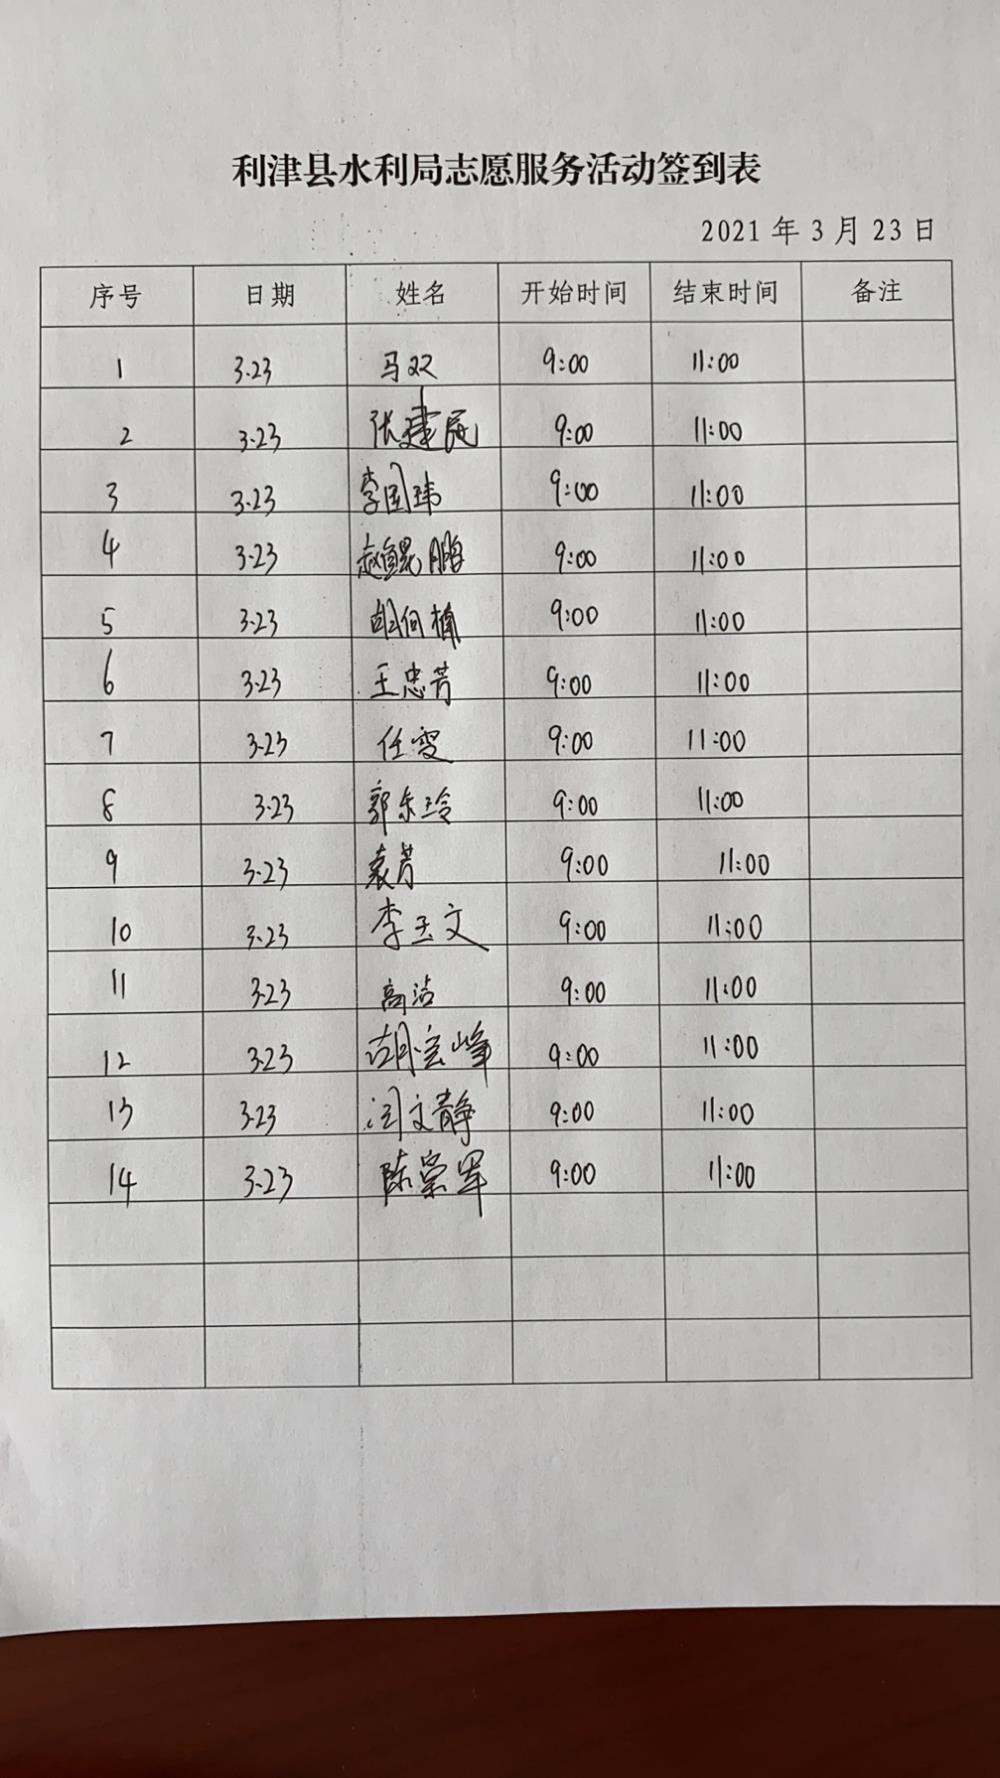 利津县水利局志愿服务活动签到表
2021 年 3 月 23 日
序号 日期 姓名 开始时间 结束时间 备注
1 3.23 马双 9:00 11:00
2 3.23 张建民 9:00 11:00
3 3.23 李国玮 9:00 11:00
4 3.23 赵鲲鹏 9:00 11:00
5 3.23 胡向楠 9:00 11:00
6 3.23 王忠芳 9:00 11:00
7 3.23 任雯 9:00 11:00
8 3.23 郭东玲 9:00 11:00
9 3.23 袁芳 9:00 11:00
10 3.23 李玉文 9:00 11:00
11 3.23 高洁 9:00 11:00
12 3.23 胡宝峰 9:00 11:00
13 3.23 闫文静 9:00 11:00
14 3.23 陈荣军 9:00 11:00